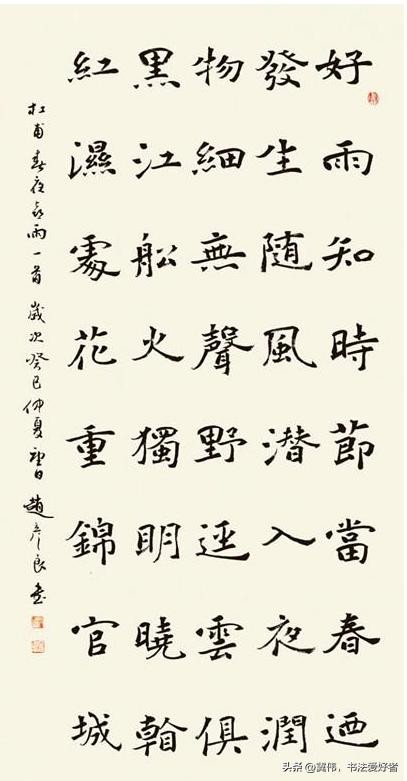 好雨知時節當春迺
發生随風潜入夜潤
物細無聲野逕雲俱
黑江船火獨明曉
紅濕處花重錦官城
杜甫春夜喜雨一首 歲次癸巳仲夏望日 趙彦良書
头条 @冀伟，书法爱好者